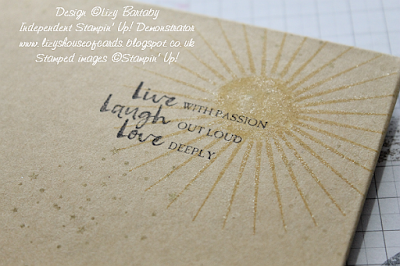 Design ©Lizy Bartaby
Independent Stampin' Up! Demonstrator
www.lizyshouseofcards.blogspot.co.uk
Stamped images ©Stampin' Up!
live WITH PASSION
laugh OUT LOUD
love DEEPLY